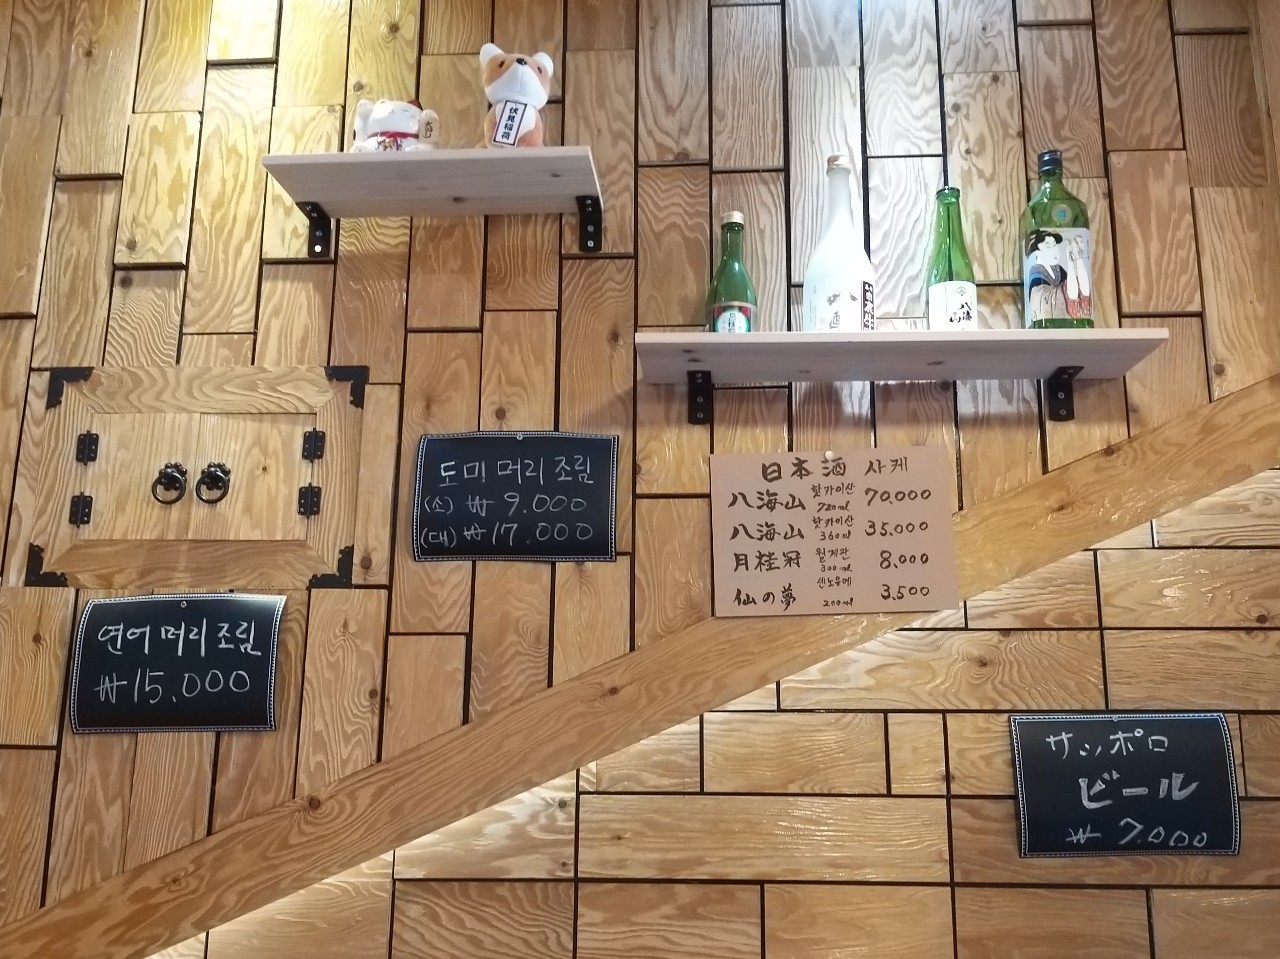 伏見稲荷
八海山
도미 머리 조림
(소) ₩ 9.000
(대) ₩ 17.000
日本酒 사케
八海山 핫카이산 720ml 70,000
八海山 핫카이산 360ml 35,000
月桂冠 월계관 300ml 8,000
仙の夢 센노유메 200ml 3,500
연어 머리 조림
₩ 15.000
サッポロ
ビール
₩ 7.000